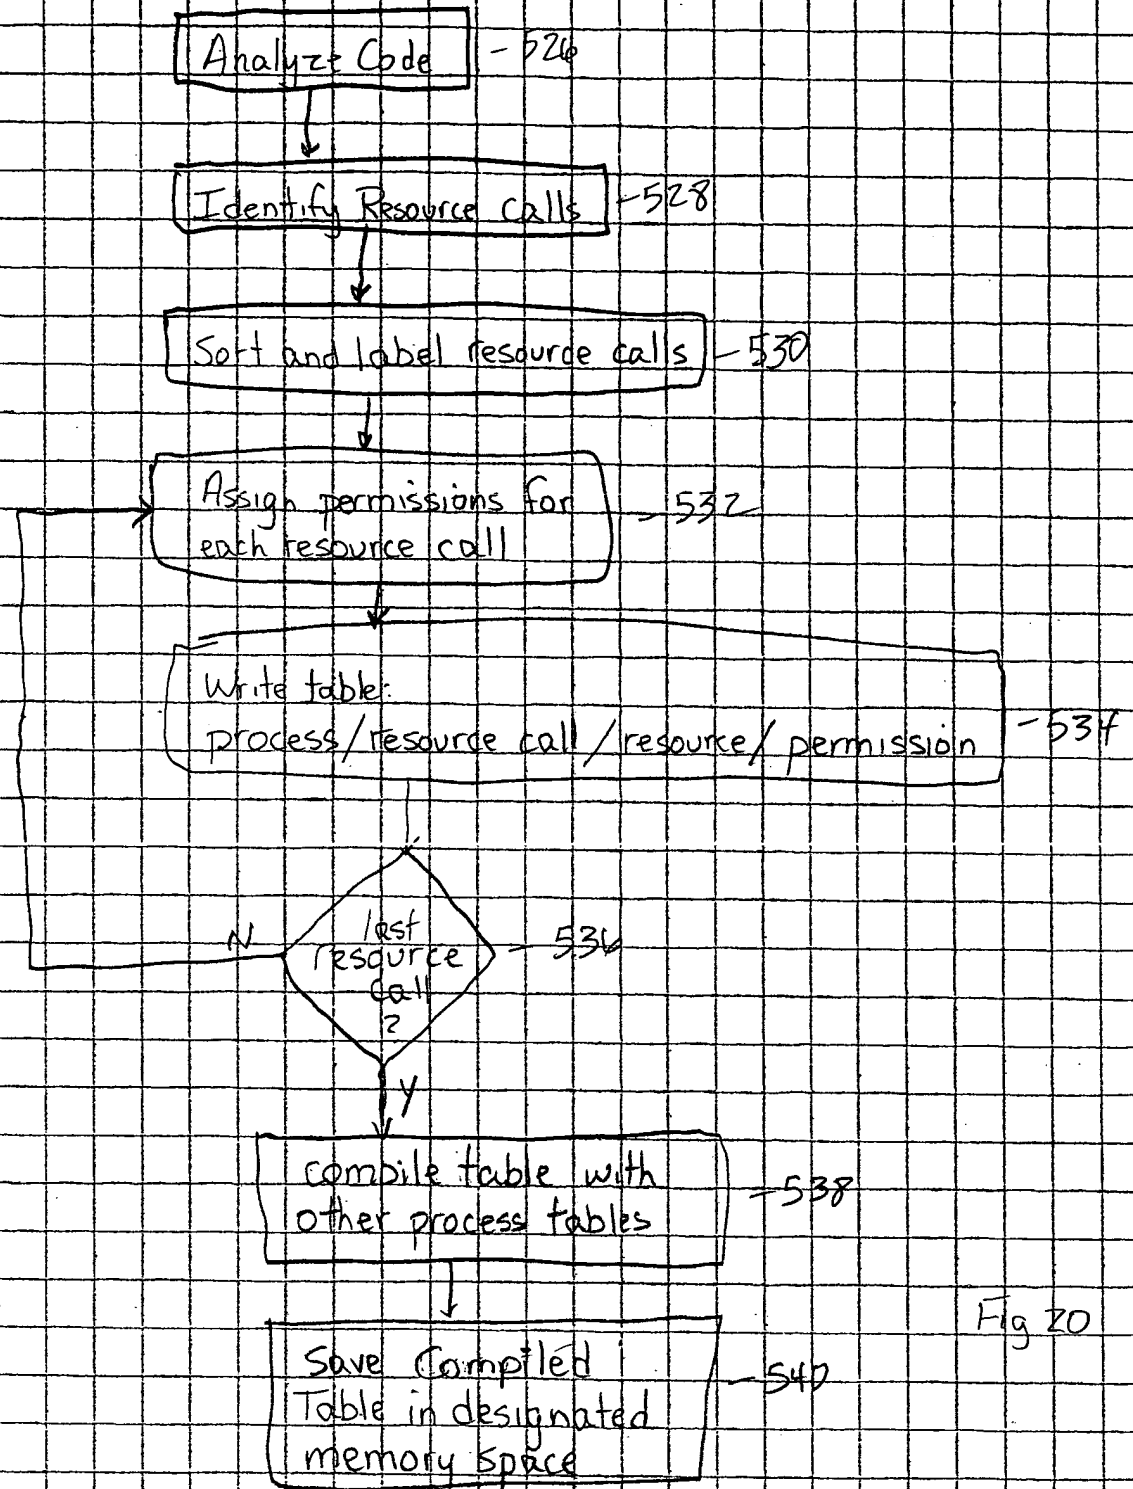 Analyze Code - 526
Identify Resource calls - 528
Sort and label resource calls - 530
Assign permissions for
each resource call
- 532
Write table:
process/resource call/resource/permission - 534
last
resource
call
?
- 536
N
Y
compile table with
other process tables
- 538
Save Compiled
Table in designated
memory space
- 540
Fig 20